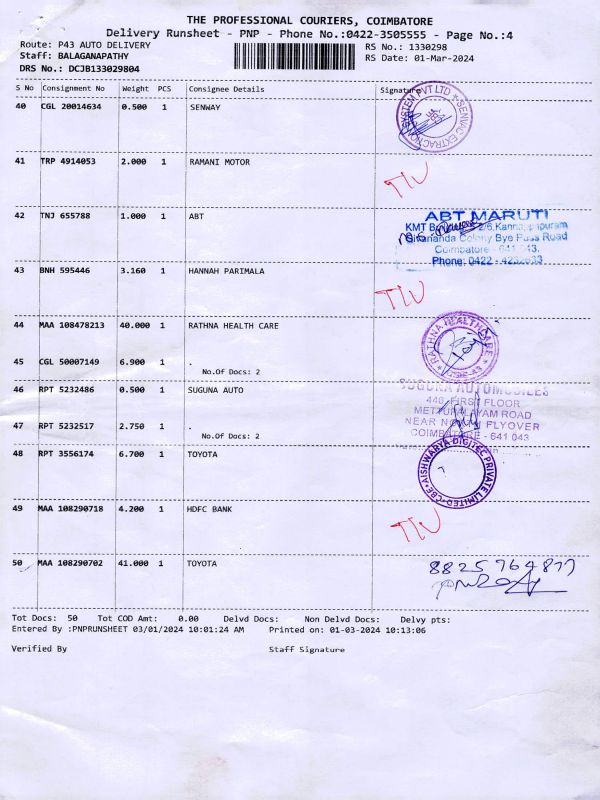 THE PROFESSIONAL COURIERS, COIMBATORE
Delivery Runsheet - PNP - Phone No.:0422-3505555 - Page No.:4
Route: P43 AUTO DELIVERY RS No.: 1330298
Staff: BALAGANAPATHY RS Date: 01-Mar-2024
DRS No.: DCJB133029804
S No Consignment No Weight PCS Consignee Details Signature
40 CGL 20014634 0.500 1 SENWAY
41 TRP 4914053 2.000 1 RAMANI MOTOR
42 TNJ 655788 1.000 1 ABT
ABT MARUTI
KMT 2/6, Kannappapuram
Sivananda Colony Bye Pass Road
Coimbatore - 641 043.
Phone: 0422 -
43 BNH 595446 3.160 1 HANNAH PARIMALA
44 MAA 108478213 40.000 1 RATHNA HEALTH CARE
RATHNA HEALTHCARE
45 CGL 50007149 6.900 1 .
No.Of Docs: 2
46 RPT 5232486 0.500 1 SUGUNA AUTO
SUGUNA AUTOMOBILES
446, FIRST FLOOR
METTUPALAYAM ROAD
NEAR FLYOVER
COIMBATORE - 641 043
47 RPT 5232517 2.750 1 .
No.Of Docs: 2
48 RPT 3556174 6.700 1 TOYOTA
AISHWARYA DIGITEC PRIVATE LIMITED * CBE *
49 MAA 108290718 4.200 1 HDFC BANK
50 MAA 108290702 41.000 1 TOYOTA
8825764877
Tot Docs: 50 Tot COD Amt: 0.00 Delvd Docs: Non Delvd Docs: Delvy pts:
Entered By :PNPRUNSHEET 03/01/2024 10:01:24 AM Printed on: 01-03-2024 10:13:06
Verified By Staff Signature